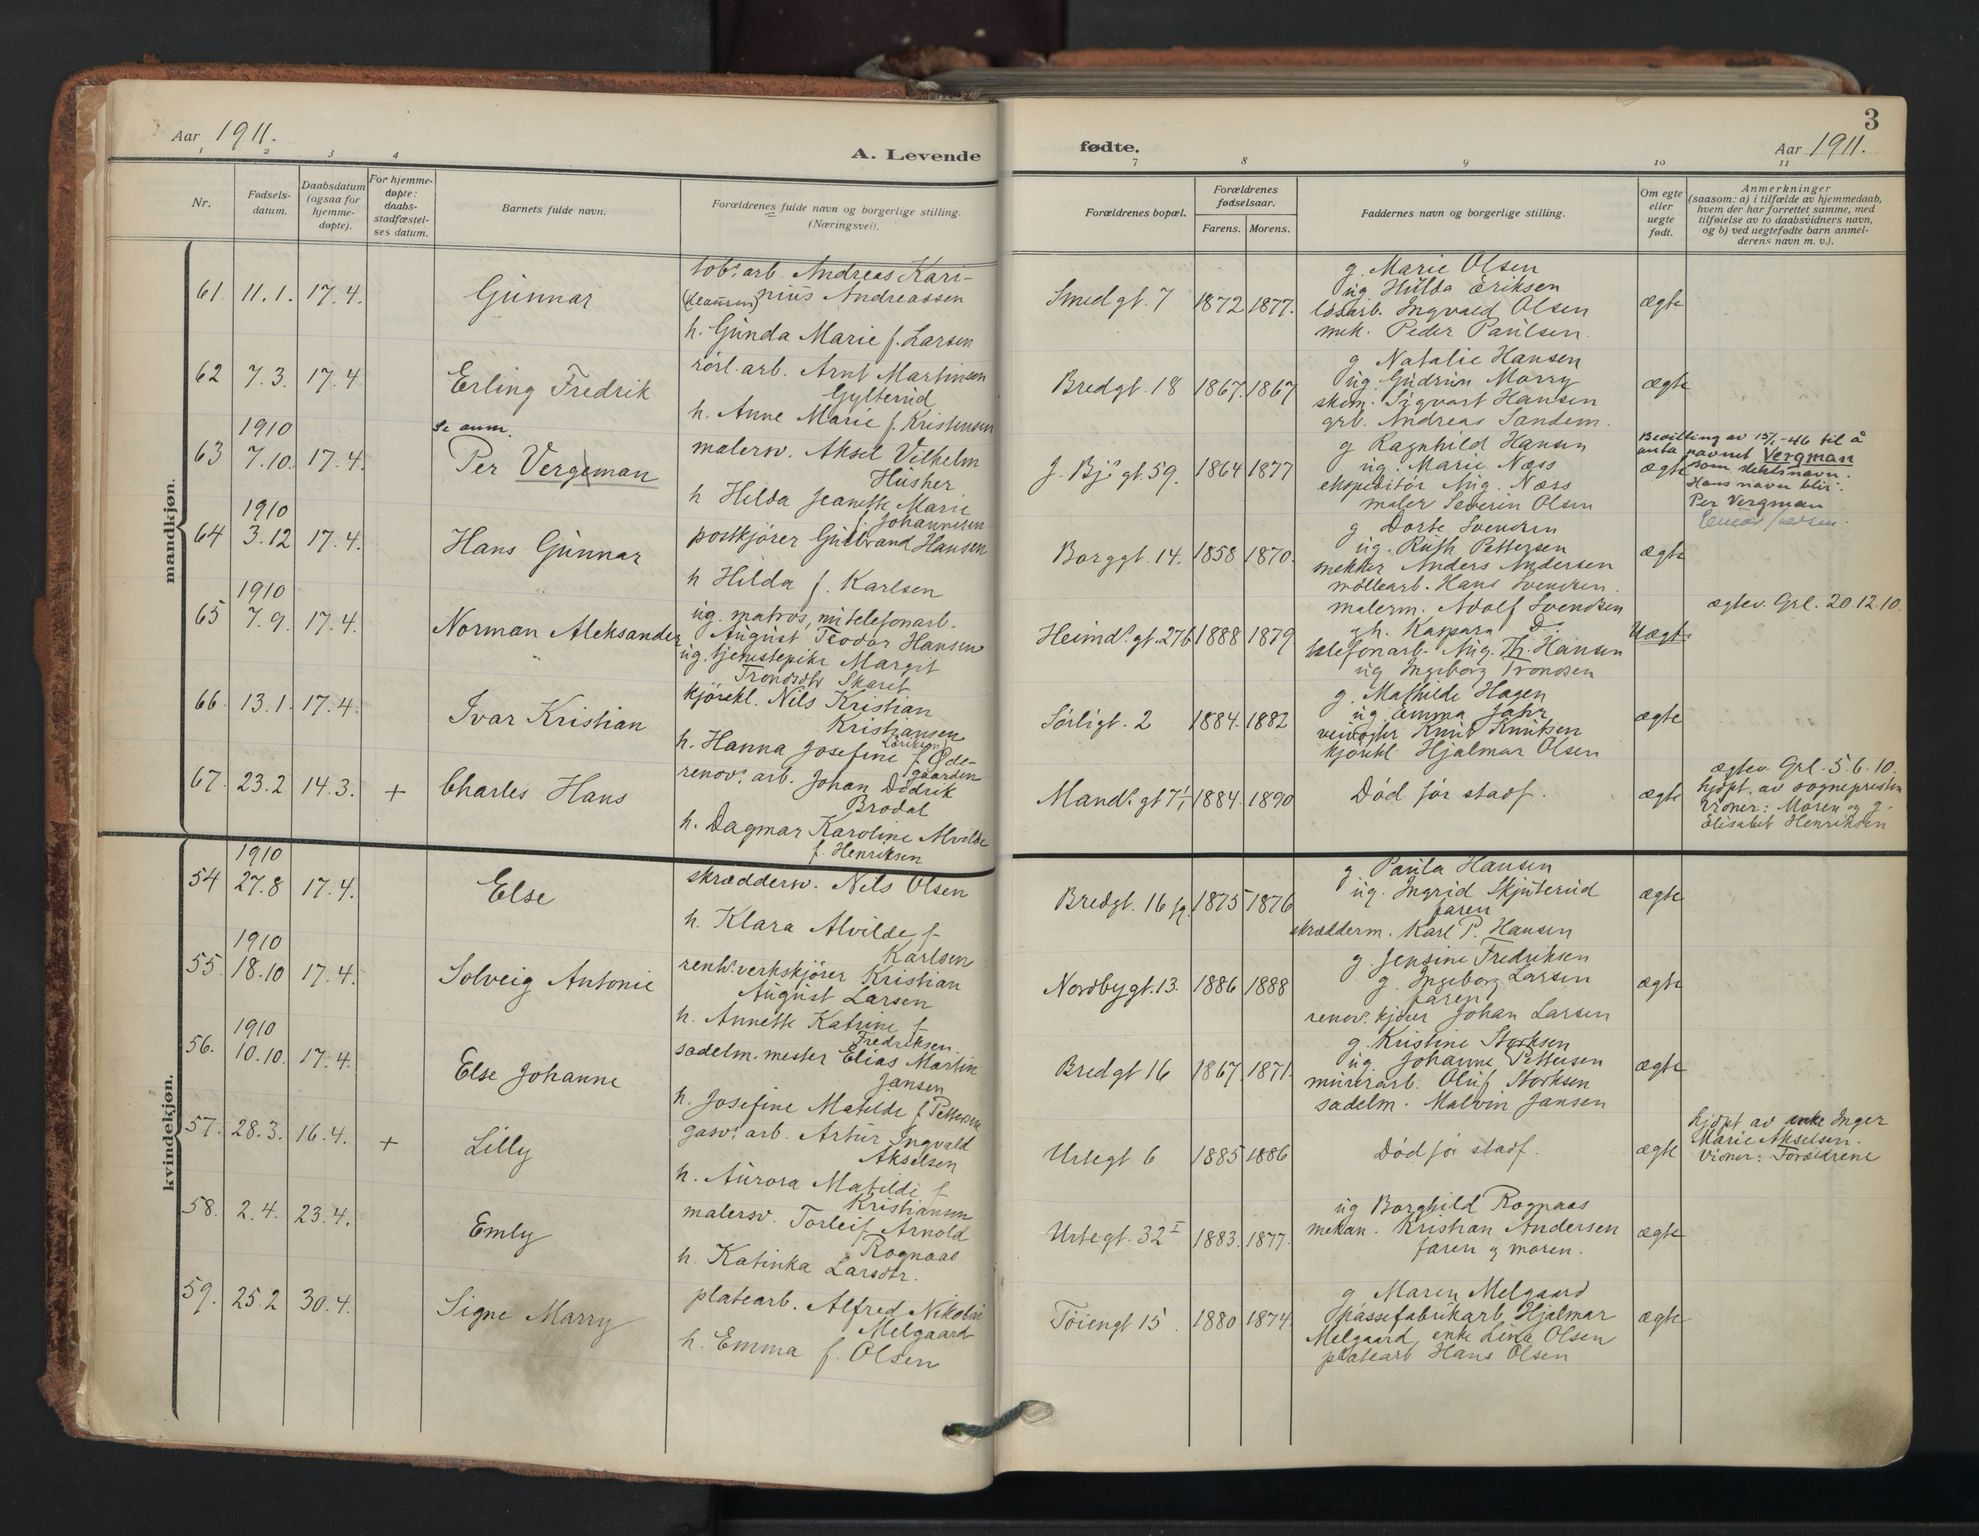 Aar 1911.
A. Levende
1 2 3 4
Nr.
Fødsels-
datum.
Daabsdatum
(ogsaa for
hjemme-
døpte).
For hjemme-
døpte:
daabs-
stadfæstel-
ses datum.
Barnets fulde navn.
Forældrenes fulde navn og borgerlige stilling.
(Næringsvei).
mandkjøn.
61. 11.1. 17.4. Gunnar
tobs. arb. Andreas Kari-
(Klausen) nius Andreassen
h. Gunda Marie f. Larsen
62 7.3. 17.4 Erling Fredrik
rørl. arb. Arnt Martinsen
Gylterud
h. Anne Marie f. Kristensen
63 1910
7.10. 17.4. Se anm.
Per Vergeman
malersv. Aksel Vilhelm
Husher
h Hilda Jeanette Marie
f. Johannesen
64 1910
3.12 17.4. Hans Gunnar
postkjører Gulbrand Hansen
h Hilda f. Karlsen
65 1910
7.9. 17.4. Norman Aleksander
ug. matros, nu telefonarb.
August Teodor Hansen
ug. tjenestepike Margit
Trondsdtr Skaret
66. 13.1. 17.4. Ivar Kristian
kjørekl. Nils Kristian
Kristiansen
h. Hanna Josefine f. Øde-
gaarden
67. 23.2 14.3. + Charles Hans
renovs. arb. Johan Didrik
Brodal
h. Dagmar Karoline Alvilde
f. Henriksen
kvindekjøn.
54 1910
27.8 17.4. Else
skræddersv. Nils Olsen
h. Klara Alvilde f
Karlsen
55. 1910
18.10 17.4. Solveig Antonie
renh. verkskjører Kristian
August Larsen
h. Annette Katrine f
Fredriksen
56. 1910
10.10. 17.4. Else Johanne
sadelm. mester Elias Martin
Jansen
h. Josefine Matilde f Pettersen
57. 28.3. 16.4. + Lilly
gasv. arb. Artur Ingvald
Akselsen
h. Aurora Matilde f
Kristiansen
58. 2.4. 23.4. Emly
malersv. Torleif Arnold
Rognaas
h. Katinka Larsdtr.
59. 25.2 30.4. Signe Marry
platearb. Alfred Nikolai
Melgaard
h. Emma f. Olsen
3
fødte.
Aar 1911.
7 8 9 10 11
Forældrenes bopæl.
Forældrenes
fødselsaar.
Farens. Morens.
Faddernes navn og borgerlige stilling.
Om egte
eller
uegte
født.
Anmerkninger
(saasom: a) i tilfælde av hjemmedaab,
hvem der har forrettet samme, med
tilføielse av to daabsvidners navn,
og b) ved uegtefødte barn anmel-
derens navn m. v.).
Smedgt. 7 1872 1877.
g. Marie Olsen
ug Hulda Eriksen
løsarb. Ingvald Olsen
mek. Peder Paulsen.
ægte
Bredgt. 18 1867. 1867
g Natalie Hansen
ug. Gudrun Marry
skom. Sigvart Hansen
grb. Andreas Sandem.
ægte
J. Bj.s gt. 59. 1864 1877
g Ragnhild Hansen
ug. Marie Næss
ekspeditør Aug. Næss
maler Severin Olsen
ægte
Bevilling av 15/1-46 til å
anta navnet Vergman
som slektsnavn.
Hans navn blir:
Per Vergman
Borggt. 14. 1858 1870.
g Dorte Svendsen
ug. Ruth Pettersen
mekker Anders Andersen
møllearb. Hans Svendsen
ægte
Heimd.s gt. 27b 1888 1879
malerm. Adolf Svendsen
gh. Kaspara Do
telefonarb. Aug. Th. Hansen
ug Ingeborg Trondsen
Uægte
ægtev. Grl. 20.12.10.
Sørligt. 2 1884. 1882
g. Mathilde Hagen
ug. Emma Jahr
veivogter Knut Knutsen
kjørekl Hjalmar Olsen
ægte
Mand.s gt 7 1884. 1890
Død før stadf.
ægte
ægtev. Grl. 5.6.10.
hjdpt. av sognepresten
Vidner: Moren og g.
Elisabet Henriksen
Bredgt. 16 1875 1876
g. Paula Hansen
ug. Ingrid Skjuterud
faren
skrædderm. Karl P. Hansen
ægte
Nordbygt. 13. 1886 1888
g. Jensine Fredriksen
g. Ingeborg Larsen
faren
renov. kjører Johan Larsen
ægte
Bredgt 16 1867. 1871.
g. Kristine Storksen
ug. Johanne Pettersen
murerarb. Oluf Storksen
sadelm. Malvin Jansen
ægte
Urtegt 6 1885 1886
Død før stadf.
ægte
hjdpt av enke Inger
Marie Akselsen.
Vidner: Forældrene
Urtegt. 32 I 1883. 1877.
ug Borghild Rognaas
mekan. Kristian Andersen
faren og moren.
ægte
Tøiengt 15 1880 1874.
g Maren Melgaard
passefabrikarb. Hjalmar
Melgaard, enke Lina Olsen
platearb Hans Olsen
ægte